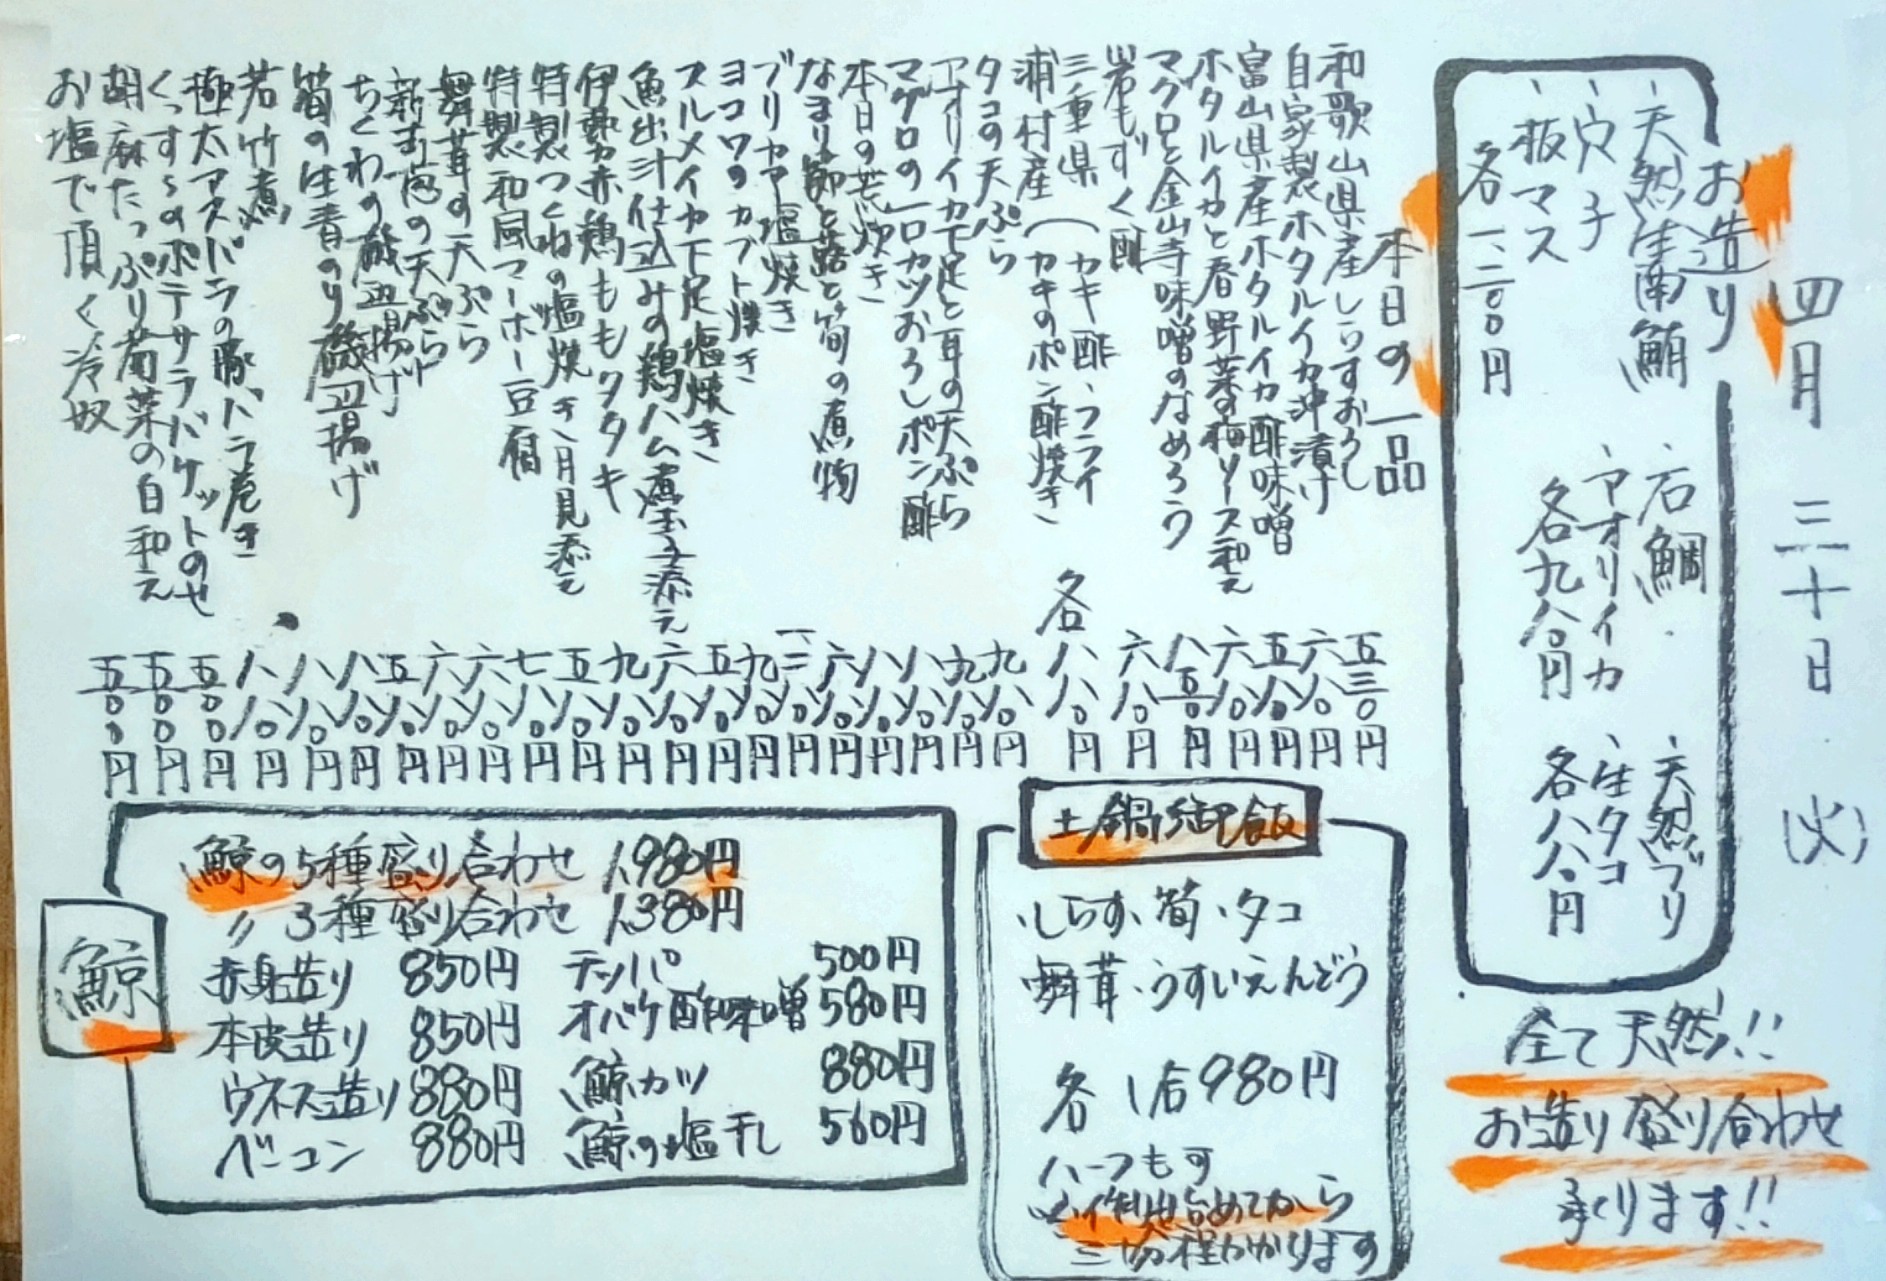 四月 三十日 (火)
お造り
、天然生南鮪
、穴子
、板マス
各一、二〇〇円
、石鯛
、アオリイカ
各九八〇円
、天然ブリ
、生タコ
各八八〇円
全て天然!!
お造り盛り合わせ
承ります!!
本日の一品
和歌山県産しらすおろし 五三〇円
自家製ホタルイカ沖漬け 六八〇円
富山県産ホタルイカ酢味噌 五八〇円
ホタルイカと春野菜の梅ソース和え 六八〇円
マグロと金山寺味噌のなめろう 八五〇円
岩もずく酢 六八〇円
三重県 (カキ酢、フライ
浦村産 (カキのポン酢焼き 各 八八〇円
タコの天ぷら 九八〇円
アオリイカ下足と耳の天ぷら 九八〇円
マグロの一口カツおろしポン酢 八八〇円
本日の荒炊き 八八〇円
なまり節と蕗と筍の煮物 六八〇円
ブリカマ塩焼き
ヨコワのカブト焼き 九八〇円
スルメイカ下足塩焼き 五八〇円
魚出汁仕込みの鶏ハム煮玉子添え 六八〇円
伊勢赤鶏ももタタキ 九八〇円
特製つくねの塩焼き月見添え 五八〇円
特製和風マーボー豆腐 七八〇円
舞茸の天ぷら 六八〇円
新玉葱の天ぷら 六八〇円
ちくわの磯辺揚げ 五八〇円
筍の生青のり磯辺揚げ 八八〇円
若竹煮 八八〇円
極太アスパラの豚バラ巻き 八八〇円
くっすんのポテサラバケットのせ 五〇〇円
胡麻たっぷり菊菜の白和え 五〇〇円
お塩で頂く冷奴 五〇〇円
土鍋御飯
、しらす、筍、タコ
舞茸、うすいえんどう
各 1合980円
ハーフも可
※作り始めてから
三十分程かかります
鯨
鯨の5種盛り合わせ 1,980円
〃 3種盛り合わせ 1,380円
赤身造り 850円 テッパ 500円
本皮造り 850円 オバケ酢味噌 580円
ウネス造り 880円 鯨カツ 880円
ベーコン 880円 鯨の塩干し 560円